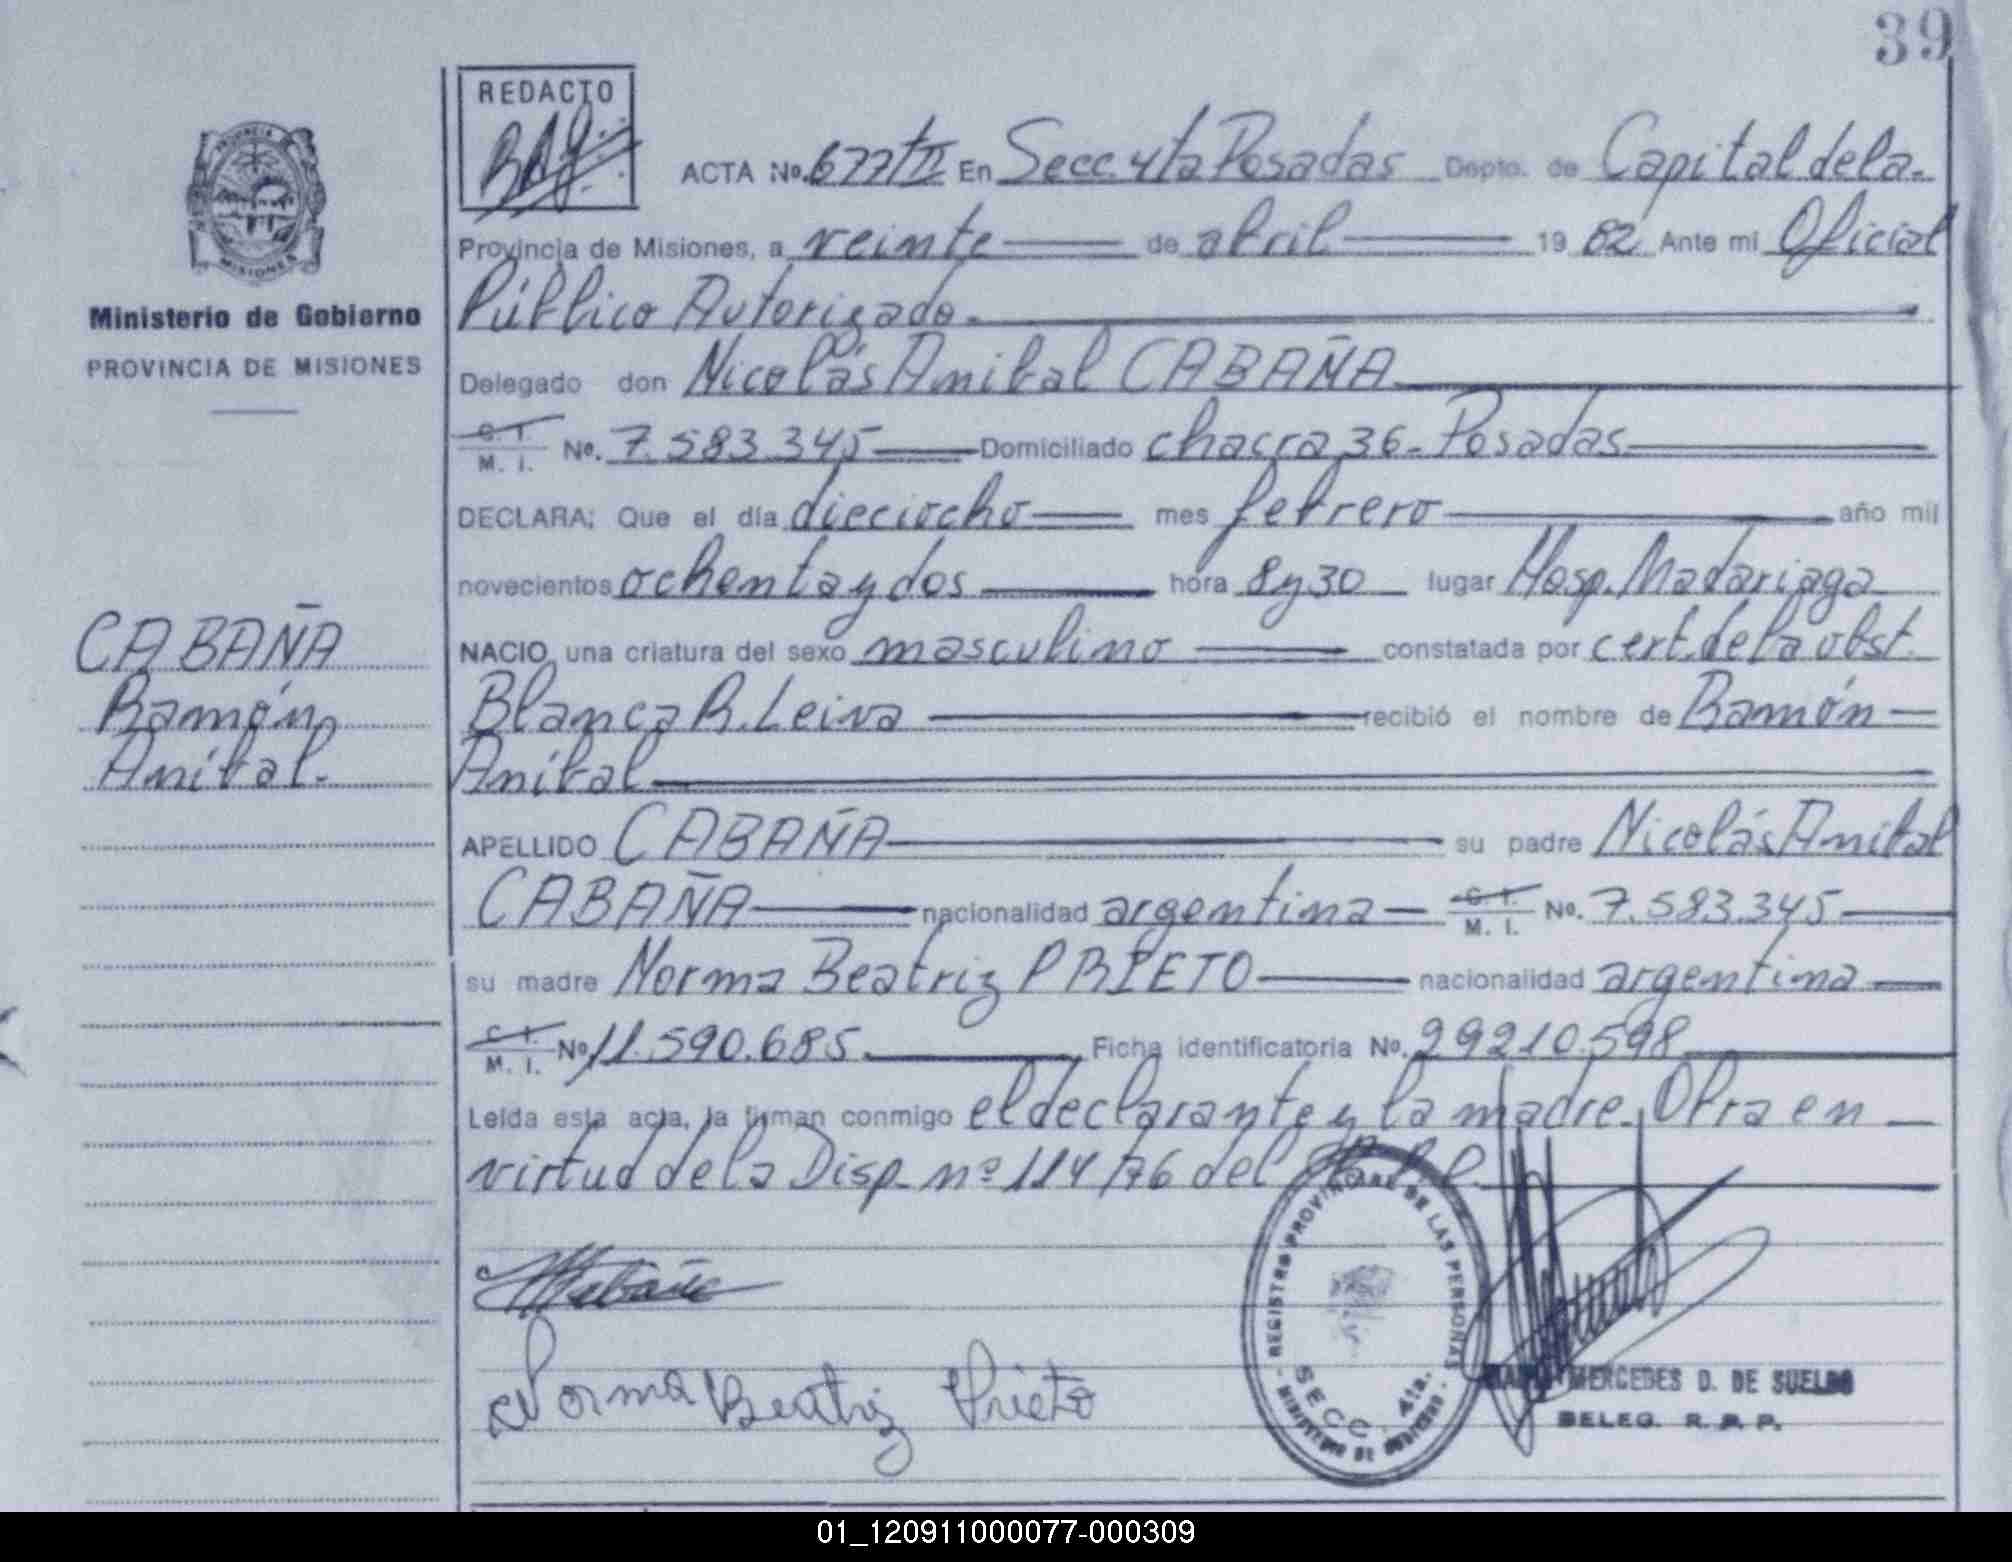 39
REDACTO
PROVINCIA
MISIONES
Ministerio de Gobierno
PROVINCIA DE MISIONES
CABAÑA
Ramón
Aníbal.
ACTA No. 677/TII En Secc. 4ta Posadas Depto. de Capital de la
Provincia de Misiones, a veinte de abril 19 82 Ante mi Oficial
Público Autorizado.
Delegado don Nicolás Anibal CABAÑA
C. I. / M. I. No. 7.583.345 Domiciliado chacra 36 - Posadas
DECLARA; Que el día dieciocho mes febrero año mil
novecientos ochenta y dos hora 8 y 30 lugar Hosp. Madariaga
NACIO una criatura del sexo masculino constatada por cert. de la obst.
Blanca R. Leiva recibió el nombre de Ramón
Aníbal
APELLIDO CABAÑA su padre Nicolás Anibal
CABAÑA nacionalidad argentina C. I. / M. I. No. 7.583.345
su madre Norma Beatriz PRIETO nacionalidad argentina
C. I. / M. I. No 11.590.685 Ficha identificatoria No. 29210.598
Leída esta acta, la firman conmigo el declarante y la madre. Obra en
virtud de la Disp. nº 114/76 del
Norma Beatriz Prieto
REGISTRO PROVINCIAL DE LAS PERSONAS
SECC. 4ta.
MINISTERIO DE GOBIERNO
MERCEDES D. DE SUELDO
DELEG. R. P. P.
01_120911000077-000309